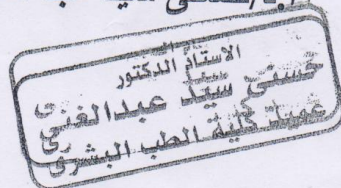 الاستاذ الدكتور
حسنى سيد عبدالغنى
عميد كلية الطب البشرى